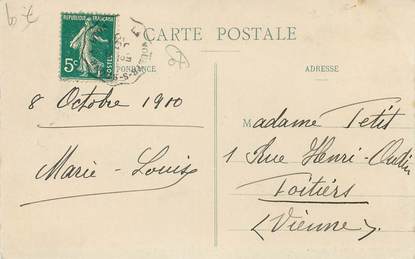 CARTE POSTALE
RÉPUBLIQUE FRANÇAISE
5c
POSTES
PONDANCE
ADRESSE
8 Octobre 1910
Marie-Louise
Madame Petit
1 Rue Henri-Oudin
Poitiers
(Vienne).